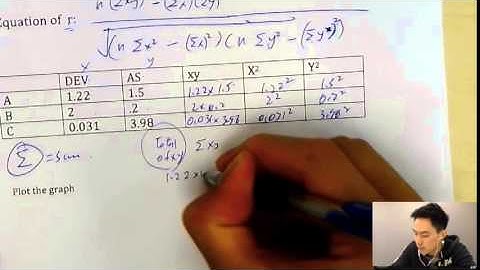 n (Σxy) − (Σx)(Σy)
Equation of r:
√(n Σx² − (Σx)²)(n Σy² − (Σy)²)
x y
DEV AS XY X² Y²
A 1.22 1.5 1.22 x 1.5 1.22² 1.5²
B 2 .2 2 x 0.2 2² 0.2²
C 0.031 3.98 0.031 x 3.98 0.031² 3.98²
Σ = Sum. Total of xy Σxy
1.22 x
Plot the graph